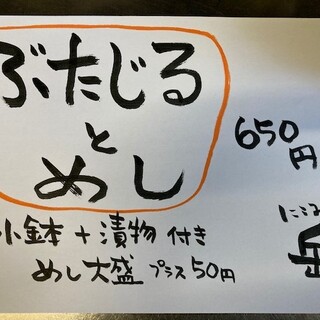 ぶたじる
と
めし
650
円
小鉢+漬物付き
めし大盛プラス50円